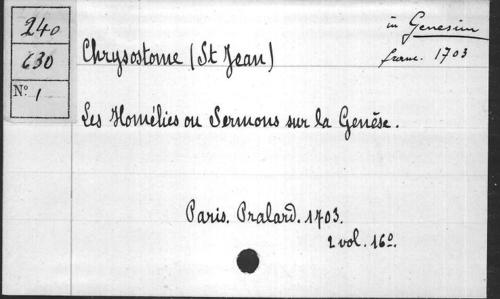 240
630
N° 1
in Genesim
franc. 1703
Chrysostome (St Jean)
Les Homélies ou Sermons sur la Genèse.
Paris. Pralard. 1703.
2 vol. 16°.